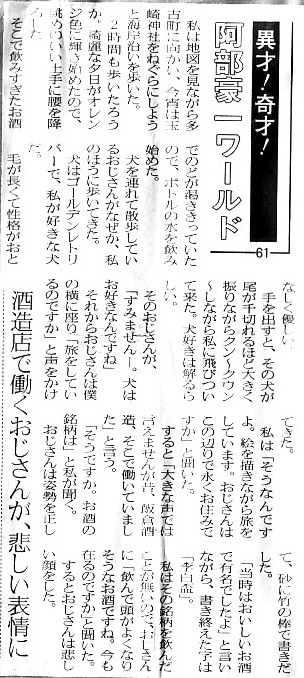 異才！奇才！
阿部豪一ワールド
61
私は地図を見ながら多
古町に向かい、今宵は玉
崎神社をねぐらにしよう
と海岸沿いを歩いた。
２時間も歩いたろう
か。綺麗な夕日がオレン
ジ色に輝き始めたので、
眺めのいい土手に腰を降
ろした。
そこで飲みすぎたお酒
でのどが渇ききっていた
ので、ボトルの水を飲み
始めた。
犬を連れて散歩してい
るおじさんがなぜか、私
のほうに歩いてきた。
犬はゴールデンレトリ
バーで、私が好きな犬
だ。
毛が長くて性格がおと
なしく優しい。
手を出すと、その犬が
尾が千切れるほど大きく
振りながらクン〜クウン
〜しながら私に飛びつい
て来た。犬好きは解るら
しい。
そのおじさんが、
「すみませんー。犬は
お好きなんですね
それからおじさんは僕
の横に座り「旅をしてい
るのですか」と声をかけ
てきた。
私は「そうなんです
よ。絵を描きながら旅を
しています。おじさんは
この辺りで永くお住みで
すか」と聞いた。
すると「大きな声では
言えませんが昔、飯倉酒
造、そこで働いていまし
た」と言う。
「そうですか。お酒の
銘柄は」と私が聞く。
おじさんは姿勢を正し
て、砂に竹の棒で書きだ
した。
「当時はおいしいお酒
で有名でしたよ」と言い
ながら、書き終えた字は
「李白盃」。
私はその銘柄を飲んだ
ことが無いので、おじさん
に「飲んで頭がよくなり
そうなお酒ですね。今も
在るのですか」と聞いた。
するとおじさんは悲し
い顔をした。
酒造店で働くおじさんが、悲しい表情に